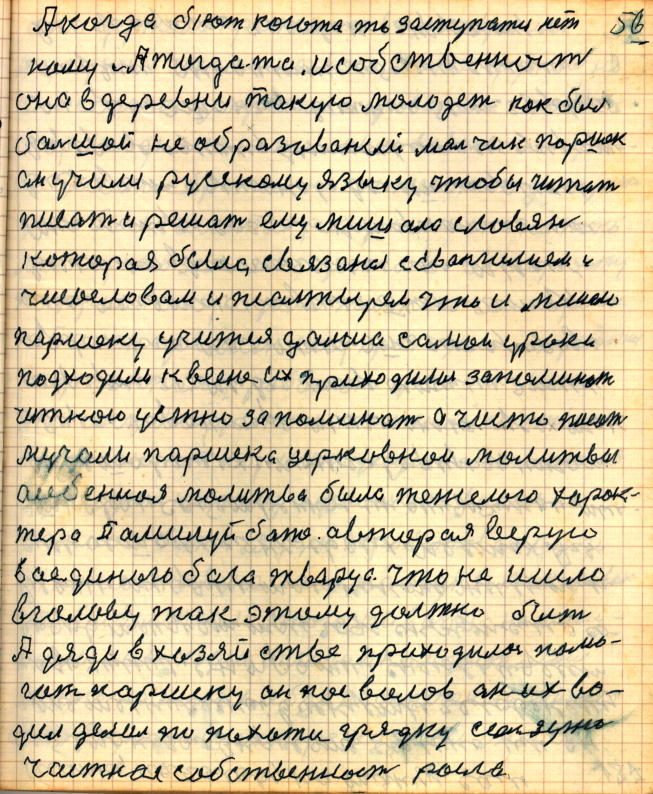 А когда бют когота то заступати нет 56
кому. А тогда-та. и собственност
она в деревни такую молодеж как был
балшой не образованый малчик паршек
он учили рускому языку чтобы читат
писат и решат ему мишало словян
которая была, связана с евангилием и
часословам и псалтырем что и мишало
паршеку учится далша самои уроки
подходили к весне их приходилы запоминат
читкою устно запоминат а часть писат
мучали паршека церковнои молитвы
особенная молитва была тежелого харок-
тера Памилуй бато. авторая верую
ваединого бага тварца. что не шшло
вголову так этому должно быт
А дяди в хозяйстве приходилос помо-
гат паршику он пас валов он их во-
дил делил по пахоти грядку сеял зерно
частная собственност росла